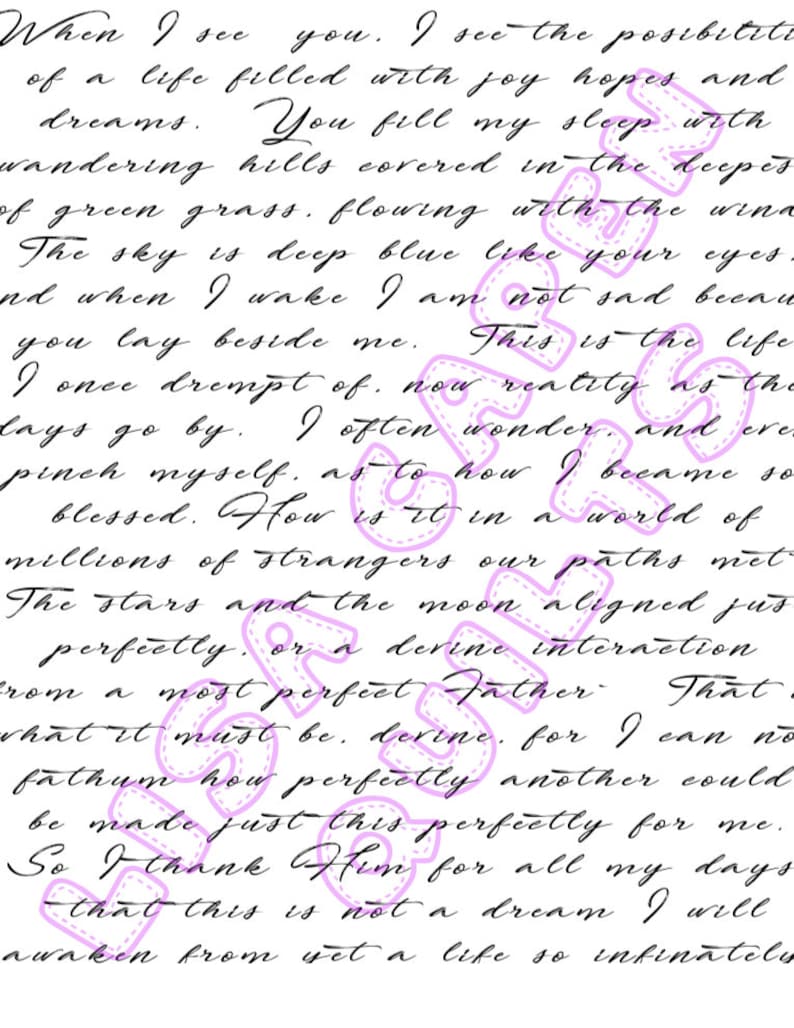 When I see you, I see the posibiliti
of a life filled with joy hopes and
dreams. You fill my sleep with
wandering hills covered in the deepes
of green grass, flowing with the wind
The sky is deep blue like your eyes,
nd when I wake I am not sad becau
you lay beside me. This is the life
I once drempt of, now reality as the
days go by. I often wonder, and eve
pinch myself, as to how I became so
blessed. How is it in a world of
millions of strangers our paths met
The stars and the moon aligned jus
perfectly, or a devine interaction
from a most perfect Father- That
what it must be, devine, for I can no
fathum how perfectly another could
be made just this perfectly for me.
So I thank Him for all my days
that this is not a dream I will
awaken from yet a life so infinately
LISA CAPEN
QUILTS